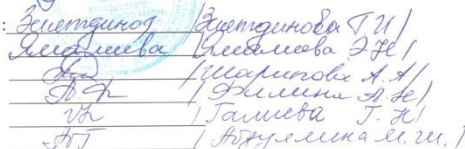 : Зиетдинов /Зиетдинова Г.И/
Ямалиева /Ямалиева Э.Н/
/Шарипова А.А/
/Филина А.Н/
/Галиева Г.Н/
/Абдуллина М.Ш./